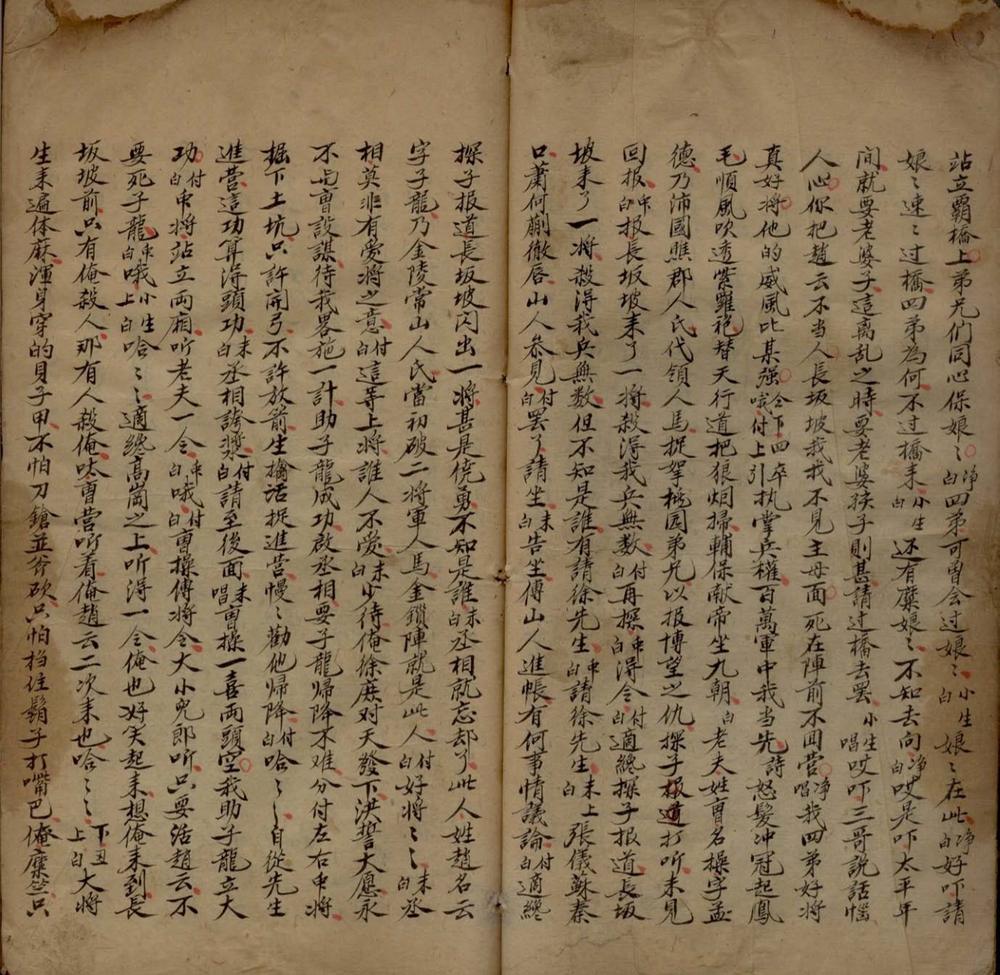 站立霸橋上弟兄們同心保娘〻净白四弟可曾会过娘〻小生白娘〻在此净白好吓請
娘〻速〻过橋四弟為何不过橋来小生白还有糜娘〻不知去向净白哎是吓太平年
间就要老婆子這离乱之時要老婆孩子則甚請过橋去罢小生唱哎吓三哥説話惱
人心你把趙云不当人長坂坡我找不見主母面死在陣前不囬营净唱我四弟好将
真好将他的威風比某强仝下四卒哦付上引执掌兵權百萬軍中我当先詩怒髮冲冠起鳳
毛順風吹透紫羅袍替天行道把狼烟掃輔保献帝坐九朝白老夫姓曹名操字孟
德乃沛國譙郡人氏代領人馬捉拏桃园弟兄以报博望之仇探子报道打听未見
回报中白报長坂坡来了一将殺得我兵無数付白再探中白得令付白適纔探子报道長坂
坡来了一将殺得我兵無数但不知是誰有請徐先生中白請徐先生末上白張儀蘇秦
口蕭何蒯徹唇山人叅見付白罢了請坐末白告坐傳山人進帳有何事情議論付白適纔
探子报道長坂坡闪出一将甚是僥勇不知是誰末白丞相就忘却了此人姓趙名云
字子龍乃金陵常山人氏當初破二将軍人馬金鎖陣就是此人付白好将〻〻末白丞
相莫非有爱将之意付白這等上将誰人不爱末白少待俺徐庶对天發下洪誓大愿永
不与曹設謀待我畧施一計助子龍成功啟丞相要子龍歸降不难分付左右中将
掘下土坑只許開弓不許放箭生擒活捉進营慢〻勸他歸降付白哈〻〻自從先生
進营這功算得頭功末白丞相誇奬付白請至後面末唱曹操一喜両頭空我助子龍立大
功付白中将站立両廂听老夫一令中白哦付白曹操傳将令大小児郎听只要活趙云不
要死子龍中白哦小生上白哈〻〻適纔高崗之上听得一令俺也好笑起来想俺来到長
坂坡前只有俺殺人那有人殺俺呔曹营听着俺趙云二次来也哈〻〻下丑上白大将
生来遍体麻渾身穿的貝子甲不怕刀鎗並斧砍只怕挡住鬍子打嘴巴俺糜竺只